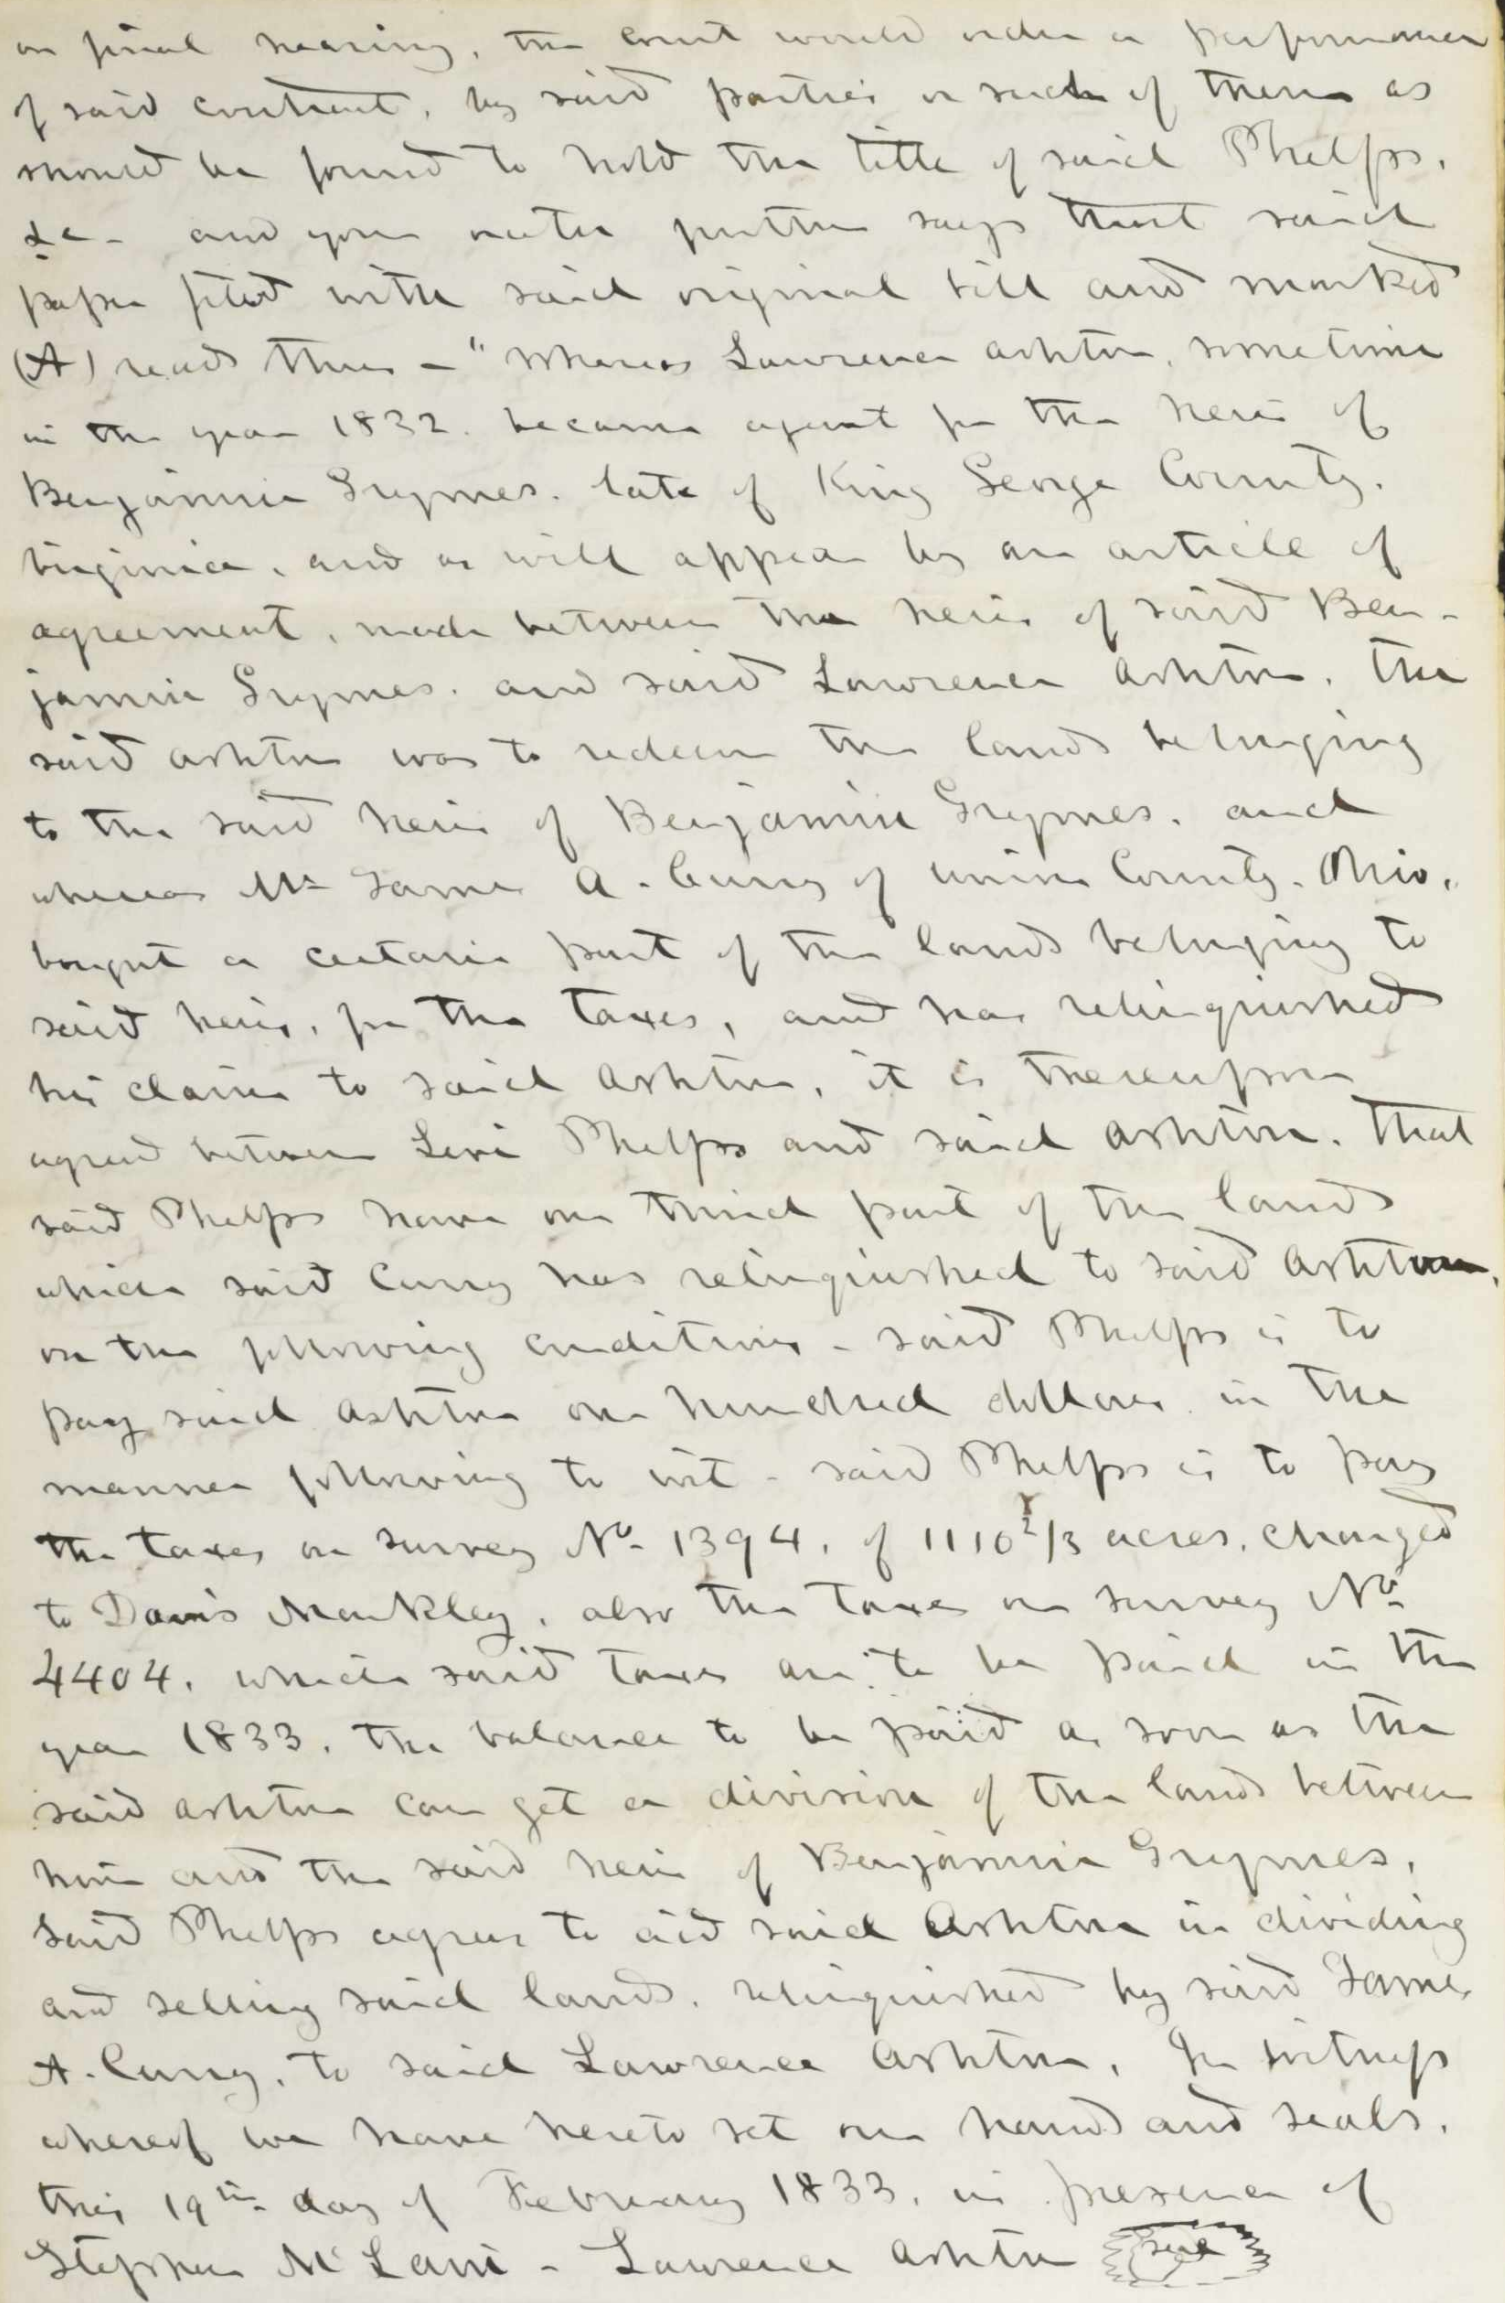 on final hearing, the court would order a performance
of said contract, by said parties or such of them as
should be found to hold the title of said Phelps,
&c - and your orator further says that said
paper filed with said original bill and marked
(A) reads thus - "Whereas Lawrence Ashton, sometime
in the year 1832. became agent for the heirs of
Benjamin Grymes. late of King George County.
Virginia, and as will appear by an article of
agreement, made between the heirs of said Ben-
jamin Grymes. and said Lawrence Ashton, the
said Ashton was to redeem the lands belonging
to the said heirs of Benjamin Grymes. and
whereas Mr James A. Curry of Union County. Ohio,
bought a certain part of the lands belonging to
said heirs, for the taxes, and has relinquished
his claim to said Ashton, it is thereupon
agreed between Levi Phelps and said Ashton. that
said Phelps have one third part of the lands
which said Curry has relinquished to said Ashton,
on the following conditions - said Phelps is to
pay said Ashton one hundred dollars in the
manner following to wit - said Phelps is to pay
the taxes on survey No. 1394, of 1110 2/3 acres, charged
to Davis Markley, also the taxes on survey No.
4404, which said taxes are to be paid in the
year 1833, the balance to be paid as soon as the
said Ashton can get a division of the lands between
him and the said heirs of Benjamin Grymes,
said Phelps agrees to aid said Ashton in dividing
and selling said lands. relinquished by said James
A. Curry, to said Lawrence Ashton, In witness
whereof we have hereto set our hands and seals,
this 19th day of February 1833, in presence of
Stephen McLain - Lawrence Ashton seal